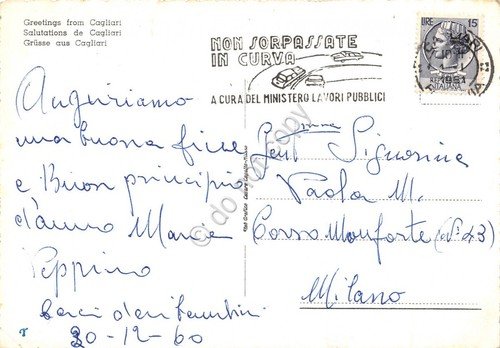 Greetings from Cagliari
Salutations de Cagliari
Grüsse aus Cagliari
NON SORPASSATE
IN CURVA
A CURA DEL MINISTERO LAVORI PUBBLICI
LIRE 15
ITALIANA
Auguriamo
una buona fine
e Buon principio
d'anno Maria
Peppino
baci dai bambini
30-12-60
Gent.ma Signorina
Paola M.
Corso Monforte (N. 43)
Milano
do not copy